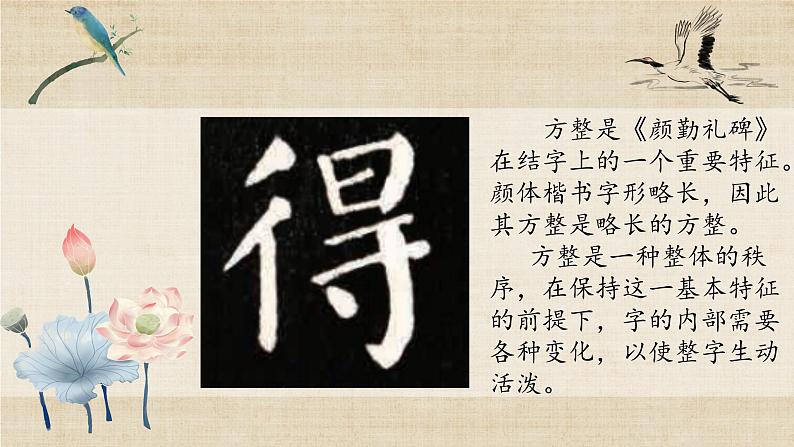 得
方整是《颜勤礼碑》
在结字上的一个重要特征。
颜体楷书字形略长，因此
其方整是略长的方整。
方整是一种整体的秩
序，在保持这一基本特征
的前提下，字的内部需要
各种变化，以使整字生动
活泼。